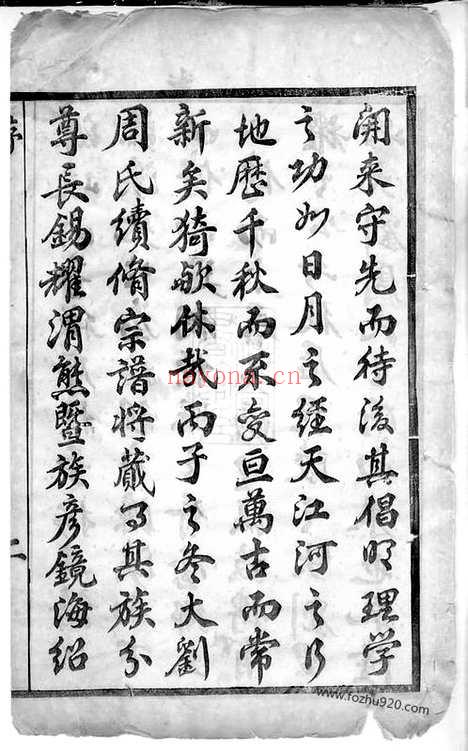 開来守先而待後其倡明理学
之功如日月之經天江河之行
地歷千秋而不变亘萬古而常
新矣猗歟休哉丙子之冬大劉
周氏續脩宗譜将蕆事其族分
尊長錫耀渭熊暨族彦鏡海紹
序
二
nayona.cn
www.fozhu920.com